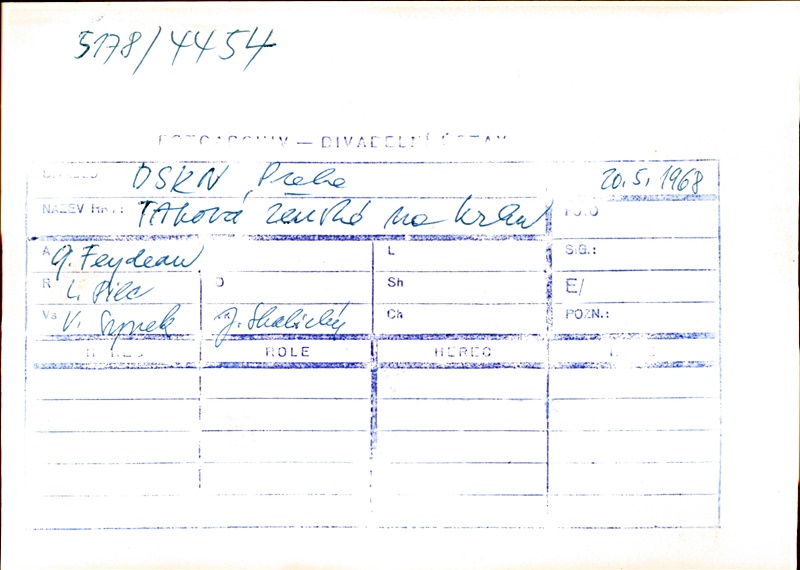 5178/4454
FOTOARCHIV — DIVADELNÍ ÚSTAV
DIVADLO DSKN Praha 20.5.1968
NÁZEV HRY: Taková ženská na krku
A G. Feydeau L SIG.:
R L. Pilc D Sh E/
Vs V. Synek K J. Skalický Ch POZN.:
ROLE HEREC